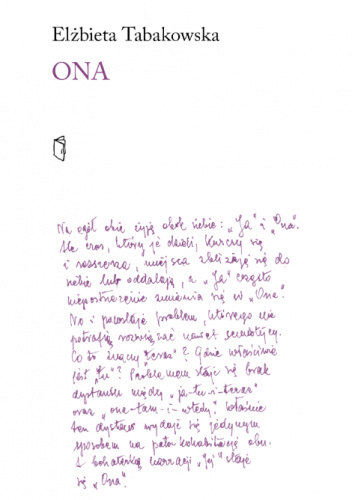 Elżbieta Tabakowska
ONA
Na ogół obie żyją obok siebie: „Ja” i „Ona”.
Ale czas, który je dzieli, kurczy się
i rozszerza, miejsca zbliżają się do
siebie lub oddalają, a „Ja” często
niepostrzeżenie zmienia się w „Ona”.
No i pozostaje problem, którego nie
potrafią rozwiązać nawet semantycy.
Co to znaczy „teraz”? Gdzie właściwie
jest „tu”? Problemem staje się brak
dystansu między „ja-tu-i-teraz”
oraz „ona-tam-i-wtedy”. Właśnie
ten dystans wydaje się jedynym
sposobem na pato-kohabitację obu.
A bohaterką narracji „Ja” staje
się „Ona”.